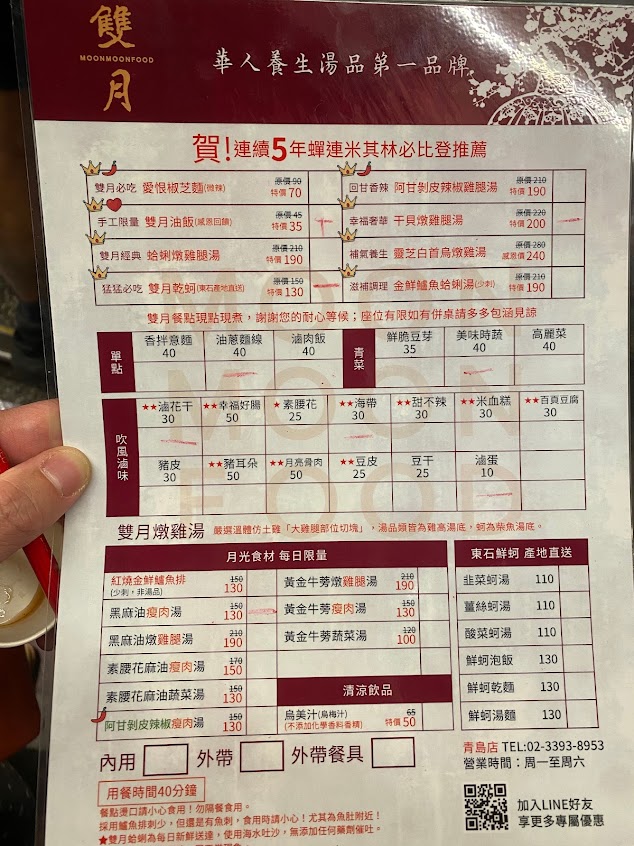 雙月
MOONMOONFOOD
華人養生湯品第一品牌
賀!連續5年蟬連米其林必比登推薦
雙月必吃 愛恨椒芝麵(微辣) 原價 90 特價 70
回甘香辣 阿甘剝皮辣椒雞腿湯 原價 210 特價 190
手工限量 雙月油飯(感恩回饋) 原價 45 特價 35
幸福奢華 干貝燉雞腿湯 原價 220 特價 200
雙月經典 蛤蜊燉雞腿湯 原價 210 特價 190
補氣養生 靈芝白首烏燉雞湯 原價 280 感恩價 240
猛猛必吃 雙月乾蚵(東石產地直送) 原價 150 特價 130
滋補調理 金鮮鱸魚蛤蜊湯(少刺) 原價 210 特價 190
雙月餐點現點現煮,謝謝您的耐心等候;座位有限如有併桌請多多包涵見諒
單點
香拌意麵 40
油蔥麵線 40
滷肉飯 40
青菜
鮮脆豆芽 35
美味時蔬 40
高麗菜 40
吹風滷味
★★滷花干 30
★★幸福好腸 50
★素腰花 25
★★海帶 30
★★甜不辣 30
★★米血糕 30
★★百頁豆腐 30
豬皮 30
★★豬耳朵 50
★★月亮骨肉 50
★★豆皮 25
豆干 25
滷蛋 10
MOON
MOON
FOOD
雙月燉雞湯 嚴選溫體仿土雞「大雞腿部位切塊」,湯品類皆為雞高湯底,蚵為柴魚湯底。
月光食材 每日限量
紅燒金鮮鱸魚排 150 130
(少刺,非湯品)
黑麻油瘦肉湯 150 130
黑麻油燉雞腿湯 210 190
素腰花麻油瘦肉湯 170 150
素腰花麻油蔬菜湯 150 130
阿甘剝皮辣椒瘦肉湯 150 130
黃金牛蒡燉雞腿湯 210 190
黃金牛蒡瘦肉湯 150 130
黃金牛蒡蔬菜湯 120 100
清涼飲品
烏美汁(烏梅汁) 65
(不添加化學香料香精) 特價 50
東石鮮蚵 產地直送
韭菜蚵湯 110
薑絲蚵湯 110
酸菜蚵湯 110
鮮蚵泡飯 130
鮮蚵乾麵 130
鮮蚵湯麵 130
內用 外帶 外帶餐具
青島店 TEL:02-3393-8953
營業時間:周一至周六
用餐時間40分鐘
餐點燙口請小心食用!勿隔餐食用。
採用鱸魚排刺少,但還是有魚刺,食用時請小心!尤其為魚肚附近!
★雙月蛤蜊為每日新鮮送達,使用海水吐沙,無添加任何藥劑催吐。
加入LINE好友
享更多專屬優惠